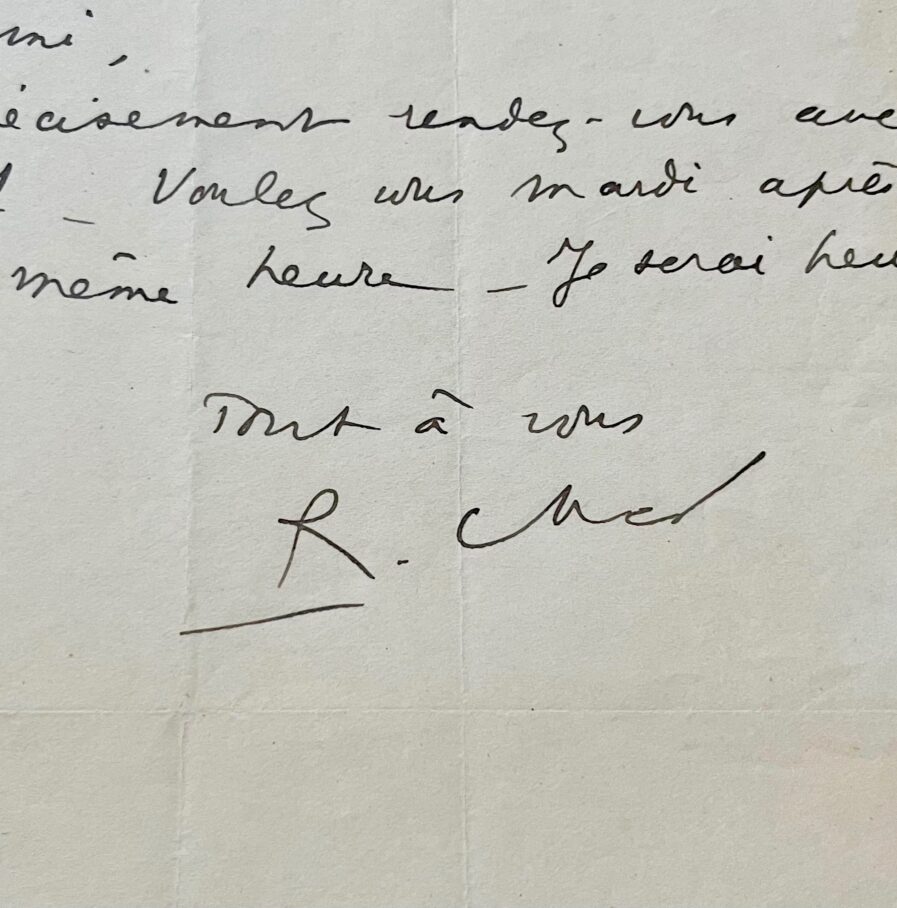 mi,
écisement rendez-vous ave
Voulez vous mardi après
même heure - Je serai heu
Tout à vous
R.